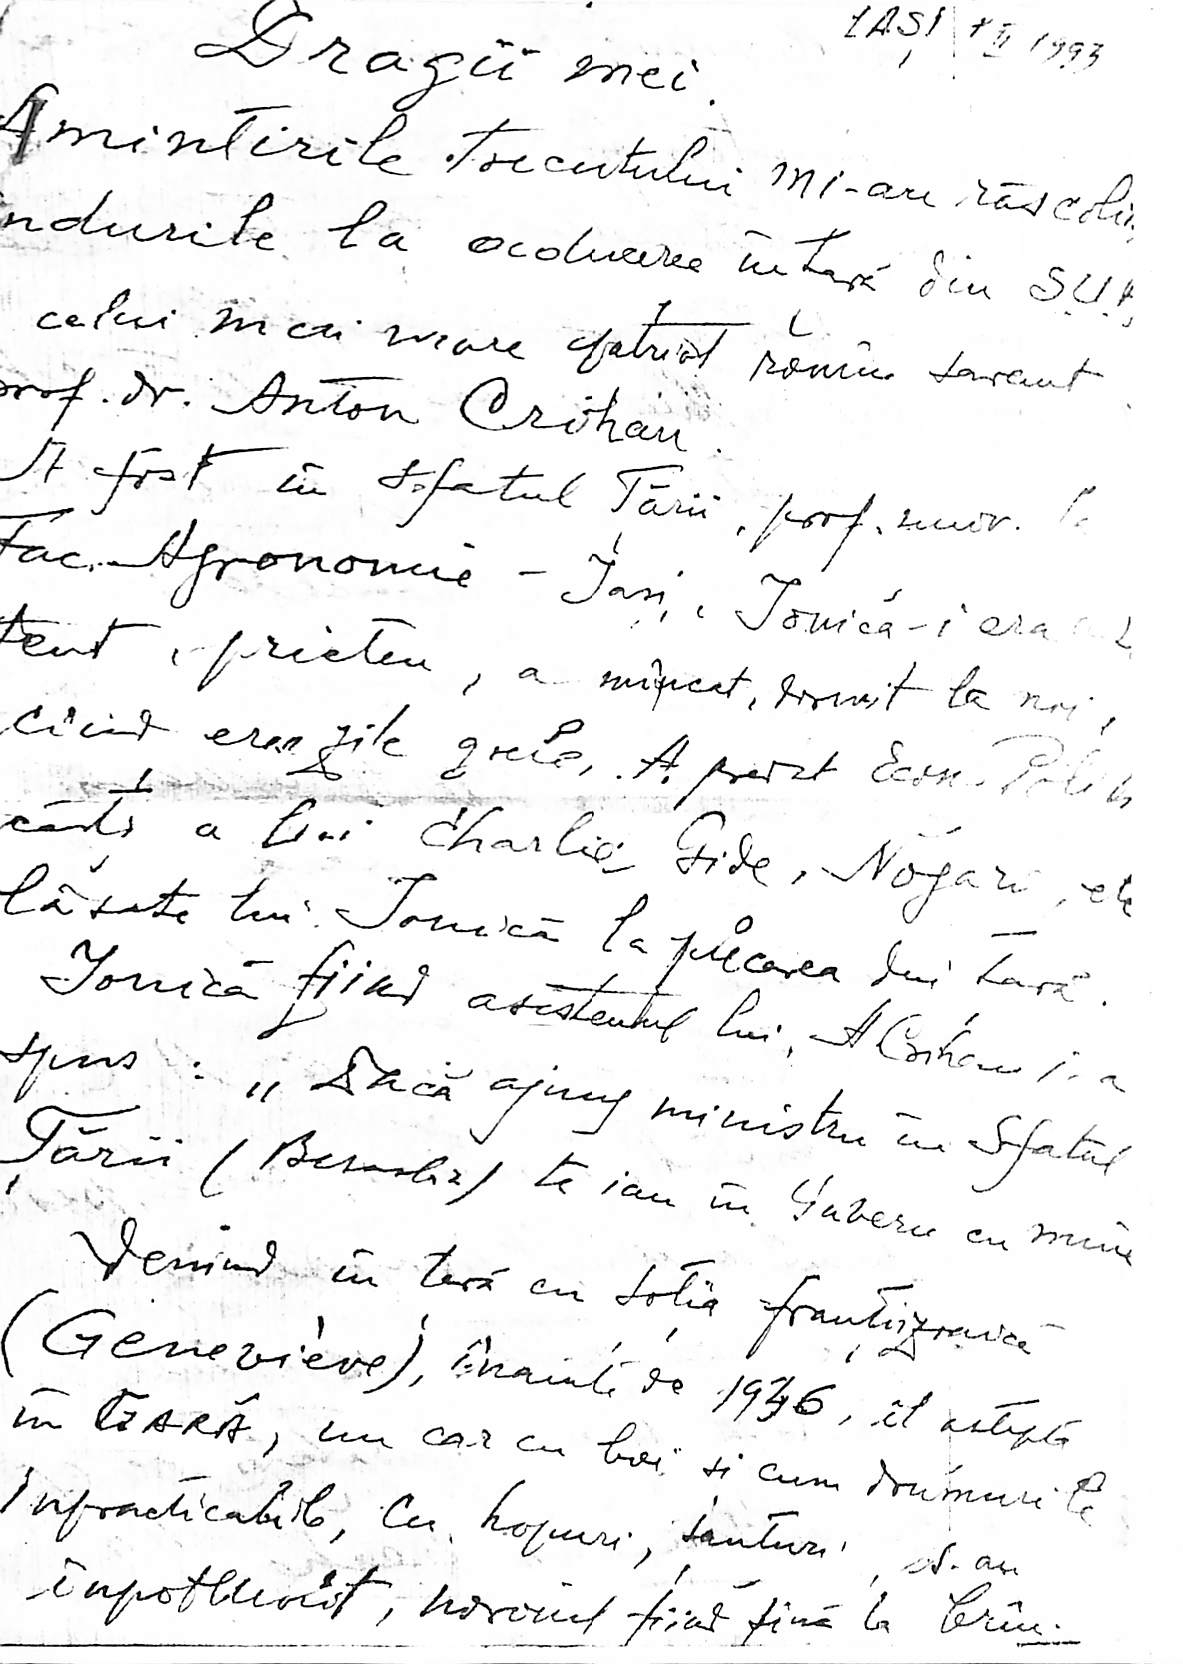 IAȘI II 1993
Dragii mei.
Amintirile trecutului mi-au răscolit
îndurile la aducerea în țară din SUA,
celui mai mare patriot român savant
prof. dr. Anton Crihan.
A fost în Sfatul Țării, prof. univ. la
Fac. Agronomie - Iași, Ionică-i era
tent, prieten, a mîncat, dormit la noi,
cînd erau zile grele. A Econ. Politic
cărți a lui Charlie Gide, Nogaro, etc
lăsate lui Ionică la plecarea din țară.
Ionică fiind asistentul lui, A Crihan i-a
spus: „Dacă ajung ministru în Sfatul
Țării (Basarabia) te iau în Guvern cu mine
Venind în țară cu soția franțuzoaică
(Genevieve), înainte de 1936, îl aștepta
în GARĂ, un car cu boi și cum drumurile
infracticabile, cu hopuri, șanturi, s-au
înpotmolit, noroiul fiind pînă la brîu.